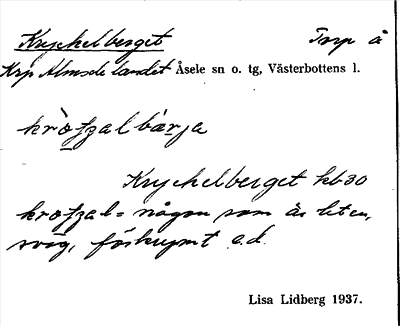 Kryckelberget Torp å
Krp Almsele landet Åsele sn o. tg, Västerbottens l.
Kryckelberget kb 30
någon som är liten,
svag, förkrympt e.d.
Lisa Lidberg 1937.